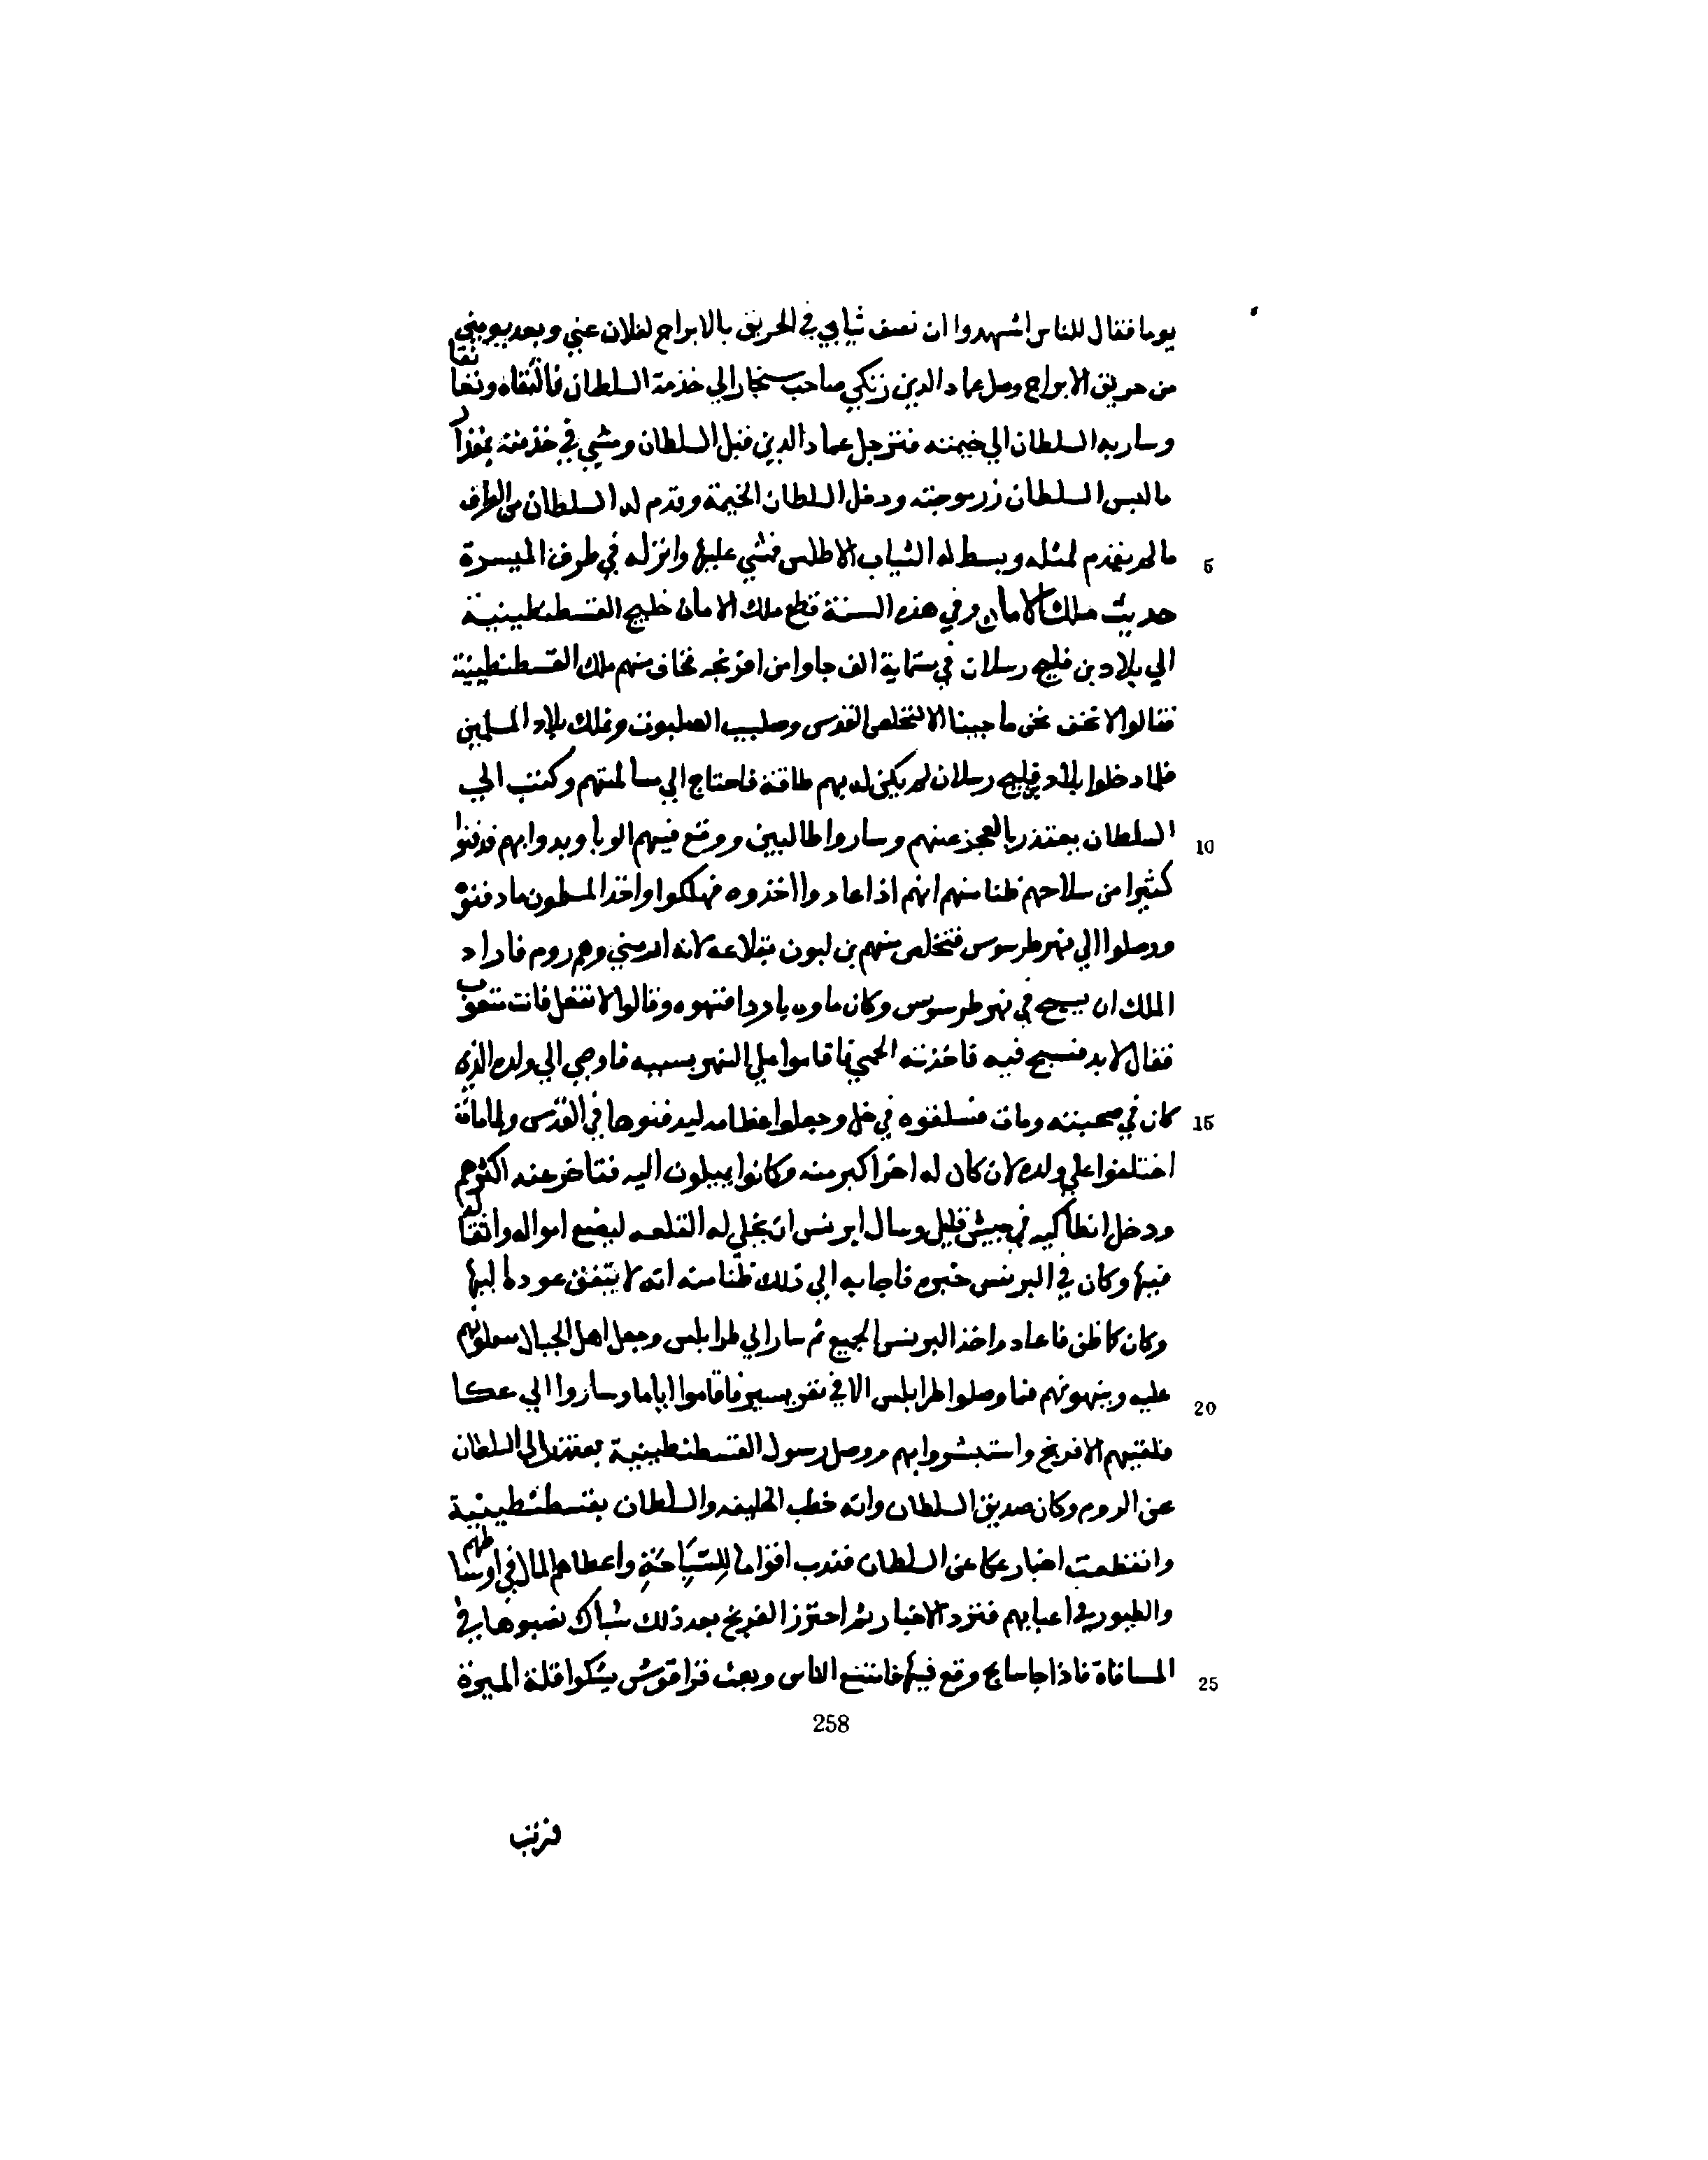 يوما فقال للناس اشهدوا ان نصف ثيابي في الحريق بالابراج لفلان عني وبعد يومين
من حريق الابراج وصل عماد الدين زنكي صاحب سنجار الي خدمة السلطان فالتقاه وتعانقا
وسار به السلطان الي خيمته فترجل عماد الدين قبل السلطان ومشي في خدمته
ما لبس السلطان زرموجته ودخل السلطان الخيمة وقدم له السلطان من الطرف
ما لم يقدم لمثله وبسط له الثياب الاطلس فمشي عليها وانزله في طرف الميسرة 5
حديث ملك الامان وفي هذه السنة قطع ملك الامان خليج القسطنطينية
الي بلاد بن قليج رسلان في ستماية الف جاوا من افرنجه فخاف منهم ملك القسطنطينية
فقالوا لا تخف نحن ما جينا الا لنخلص القدس وصليب الصلبوت ونملك بلاد المسلمين
فلما دخلوا بلاد بن قليج رسلان لم يكن له بهم طاقة فاحتاج الي مسالمتهم وكتب الي
السلطان يعتذر بالعجز عنهم وساروا طالبين ووقع فيهم الوبا وبدوابهم فدفنوا 10
كثيرا من سلاحهم ظنا منهم انهم اذا عادوا اخذوه فهلكوا واخذ المسلمون ما دفنوه
ووصلوا الي نهر طرسوس فتخلص منهم بن لبون بقلاعه لانه ارمني وهم روم فاراد
الملك ان يسبح في نهر طرسوس وكان ماوه باردا فنهوه وقالوا لا تفعل فانت تتعوب
فقال لا بد فسبح فيه فاخذته الحمي فاقاموا علي النهر بسببه فاوصي الي ولده الذي
كان في صحبته ومات فسلقوه في خل وجعلوا عظامه ليدفنوها في القدس ولما مات 15
اختلفوا علي ولده لان كان له اخر اكبر منه وكانوا يميلون اليه فتاخر عنه اكثرهم
ودخل انطاكيه في جيش قليل وسال ابرنس ان يخلي له القلعه ليضع امواله واثقاله
فيها وكان في البرنس خبره فاجابه الي ذلك ظنا منه انه لا يتفق عوده اليها
وكان كما ظن فما عاد واخذ البرنس الجميع ثم سار الي طرابلس وجعل اهل الجبال
عليه وينهبونهم فما وصلوا طرابلس الا في نفر يسير فاقاموا اياما وساروا الي عكا 20
فلقيهم الافرنج واستبشروا بهم ووصل رسول القسطنطينية يعتذر الي السلطان
عن الروم وكان صديق السلطان وانه خطب الخليفه والسلطان بقسطنطينية
وانقطعت اخبار عكا عن السلطان فندب اقواما للسباحة واعطاهم المال في اوساطهم
والطيور في اعبابهم فترد الاخبار ثم احترز الفرنج بعد ذلك شباك نصبوها في
المسافاة فاذا جا سابح وقع فيها فامتنع الناس وبعث قراقوش يشكوا قلة الميرة 25
258
فرتب